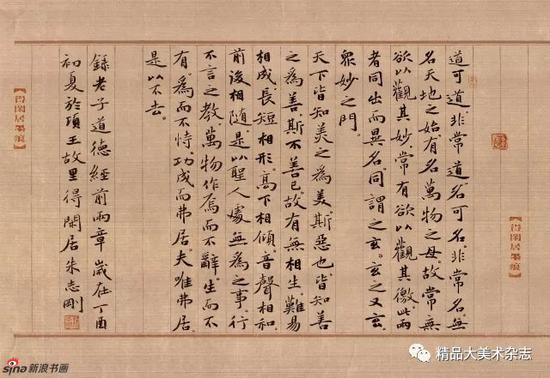 道可道,非常道,名可名,非常名,無
名天地之始,有名萬物之母,故常無
欲以觀其妙,常有欲以觀其徼,此兩
者同出而異名,同謂之玄,玄之又玄,
眾妙之門。
天下皆知美之為美,斯惡也,皆知善
之為善,斯不善已,故有無相生,難易
相成,長短相形,高下相傾,音聲相和,
前後相隨,是以聖人處無為之事,行
不言之教,萬物作焉而不辭,生而不
有,為而不恃,功成而弗居,夫唯弗居,
是以不去。
錄老子道德經前兩章歲在丁酉
初夏於項王故里得閑居朱志剛
【得閑居墨痕】
【得閑居墨痕】
sina新浪书画
精品大美术杂志